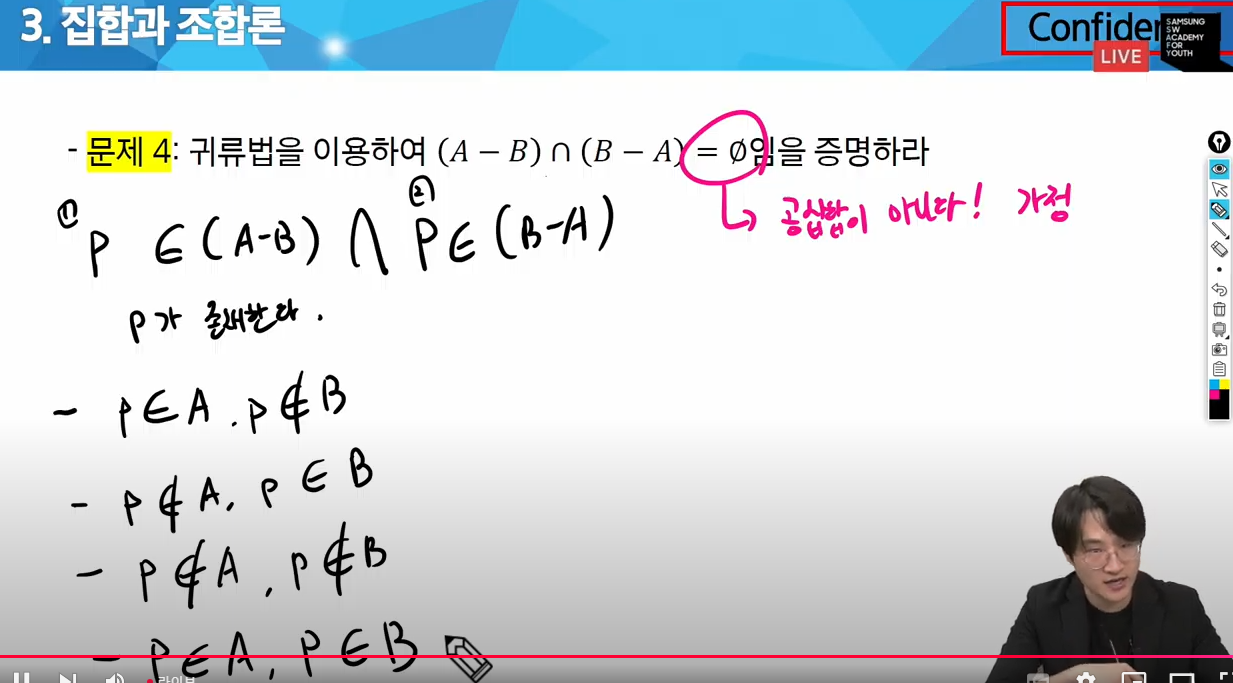 3. 집합과 조합론
Confiden
SAMSUNG
SW
ACADEMY
FOR
YOUTH
LIVE
- 문제 4: 귀류법을 이용하여 (A − B) ∩ (B − A) = ∅임을 증명하라
↳ 공집합이 아니다! 가정
① P ∈ (A-B) ∩ ② P ∈ (B-A)
P가 존재한다.
- P ∈ A, P ∉ B
- P ∉ A, P ∈ B
- P ∉ A, P ∉ B
- P ∈ A, P ∈ B
라이브